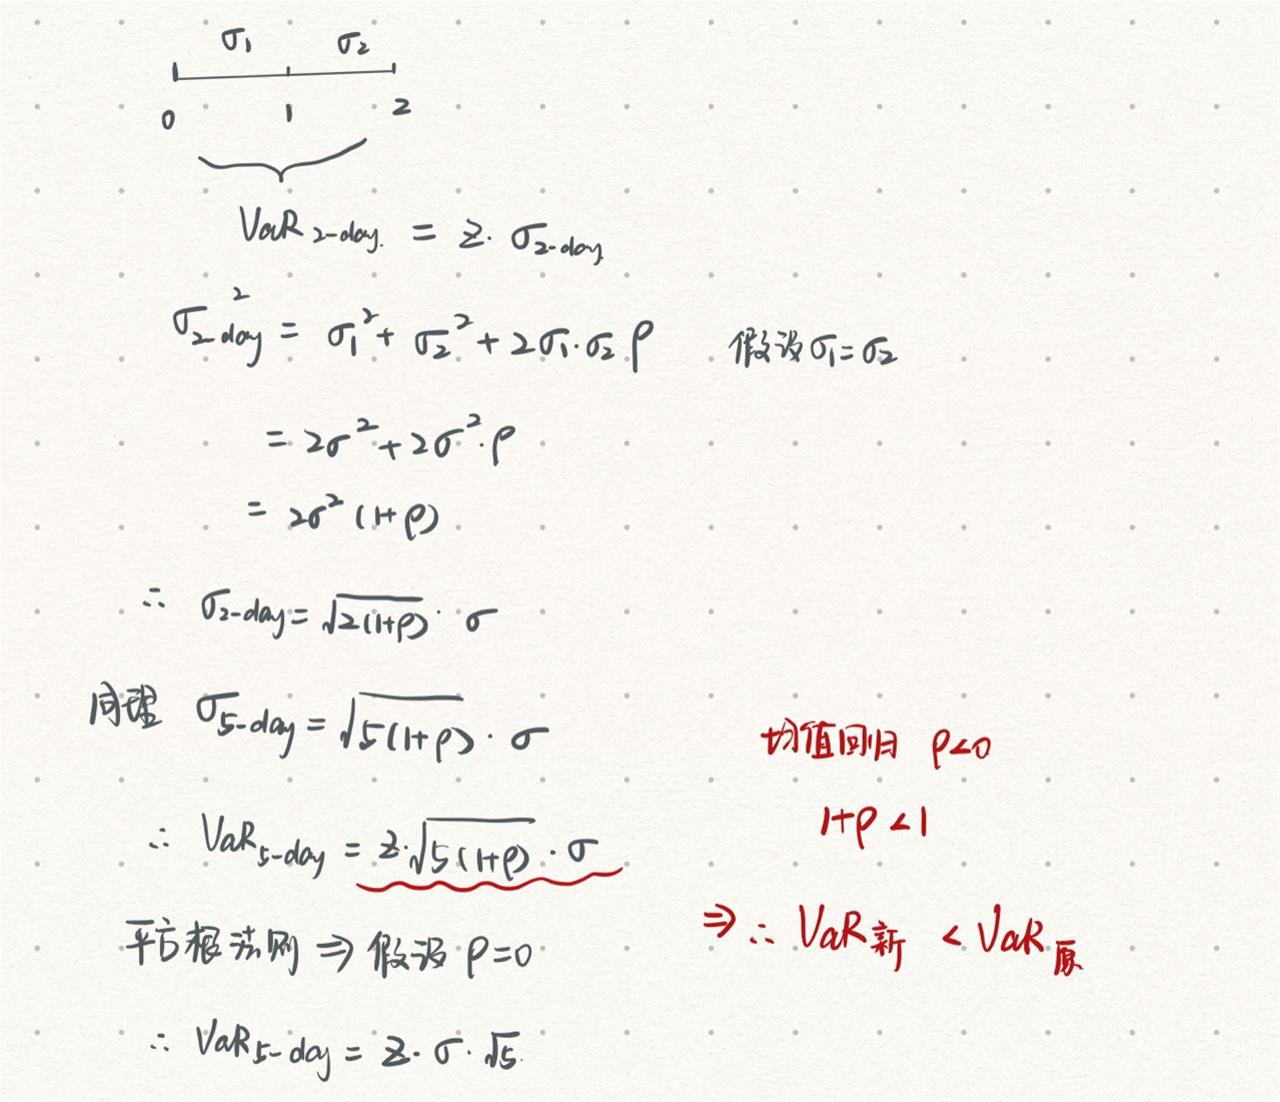 σ₁ σ₂
0 1 2
VaR₂₋day. = z· σ₂₋day
σ₂₋day² = σ₁² + σ₂² + 2σ₁·σ₂ ρ 假设σ₁=σ₂
= 2σ² + 2σ²·ρ
= 2σ² (1+ρ)
∴ σ₂₋day = √2(1+ρ) · σ
同理 σ₅₋day = √5(1+ρ) · σ
均值回归 ρ<0
1+ρ <1
∴ VaR₅₋day = z·√5(1+ρ) · σ
⇒ ∴ VaR新 < VaR原
平方根法则 ⇒ 假设 ρ=0
∴ VaR₅₋day = z· σ· √5